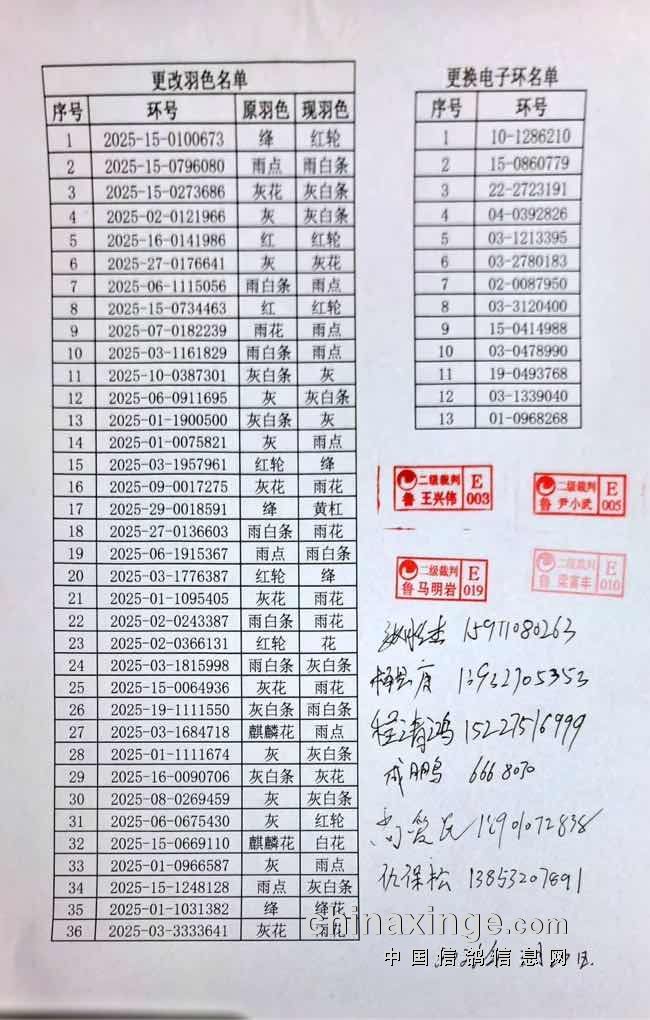 更改羽色名单
序号 环号 原羽色 现羽色
1 2025-15-0100673 绛 红轮
2 2025-15-0796080 雨点 雨白条
3 2025-15-0273686 灰花 灰白条
4 2025-02-0121966 灰 灰白条
5 2025-16-0141986 红 红轮
6 2025-27-0176641 灰 灰花
7 2025-06-1115056 雨白条 雨点
8 2025-15-0734463 红 红轮
9 2025-07-0182239 雨花 雨点
10 2025-03-1161829 雨白条 雨点
11 2025-10-0387301 灰白条 灰
12 2025-06-0911695 灰 灰白条
13 2025-01-1900500 灰白条 灰
14 2025-01-0075821 灰 雨点
15 2025-03-1957961 红轮 绛
16 2025-09-0017275 灰花 雨花
17 2025-29-0018591 绛 黄杠
18 2025-27-0136603 雨白条 雨花
19 2025-06-1915367 雨点 雨白条
20 2025-03-1776387 红轮 绛
21 2025-01-1095405 灰花 雨花
22 2025-02-0243387 雨白条 雨花
23 2025-02-0366131 红轮 花
24 2025-03-1815998 雨白条 灰白条
25 2025-15-0064936 灰花 雨花
26 2025-19-1111550 灰白条 雨白条
27 2025-03-1684718 麒麟花 雨点
28 2025-01-1111674 灰 灰白条
29 2025-16-0090706 灰白条 灰花
30 2025-08-0269459 灰 灰白条
31 2025-06-0675430 灰 红轮
32 2025-15-0669110 麒麟花 白花
33 2025-01-0966587 灰 雨点
34 2025-15-1248128 雨点 灰白条
35 2025-01-1031382 绛 绛花
36 2025-03-3333641 灰花 雨花
更换电子环名单
序号 环号
1 10-1286210
2 15-0860779
3 22-2723191
4 04-0392826
5 03-1213395
6 03-2780183
7 02-0087950
8 03-3120400
9 15-0414988
10 03-0478990
11 19-0493768
12 03-1339040
13 01-0968268
二级裁判 E
鲁 王兴伟 003
二级裁判 E
鲁 尹小武 005
二级裁判 E
鲁 马明岩 019
二级裁判 E
鲁 梁富丰 010
15911080263
13932705353
程清鸿 15227516999
成鹏鸟 6668070
13901072838
仇保松 13853207891
chinaxinge.com
中国信鸽信息网